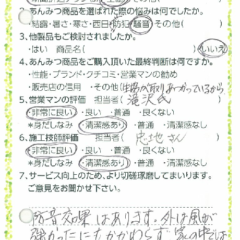 2.あんみつ商品を選ばれた際の悩みは何でしたか。
・結露・暑さ・寒さ・西日・防犯・騒音・その他( )
3.他製品もご検討されましたか。
・はい 商品名( ) ・いいえ
4.あんみつ商品をご購入頂いた最終判断は何ですか。
・性能・ブランド・クチコミ・営業マンの勧め
・販売店の信用 ・その他(
5.営業マンの評価 担当者( 滝沢氏 )
・非常に良い ・良い ・普通 ・良くない
★身だしなみ ・清潔感あり ・普通 ・清潔感なし
6.施工技師評価 担当者( さん )
・非常に良い ・良い ・普通 ・良くない
★身だしなみ ・清潔感あり ・普通 ・清潔感なし
7.サービス向上のため、より切磋琢磨してまいります。
ご意見をお聞かせ下さい。
防音効果はあります。外は風が
強かったにもかかわらず